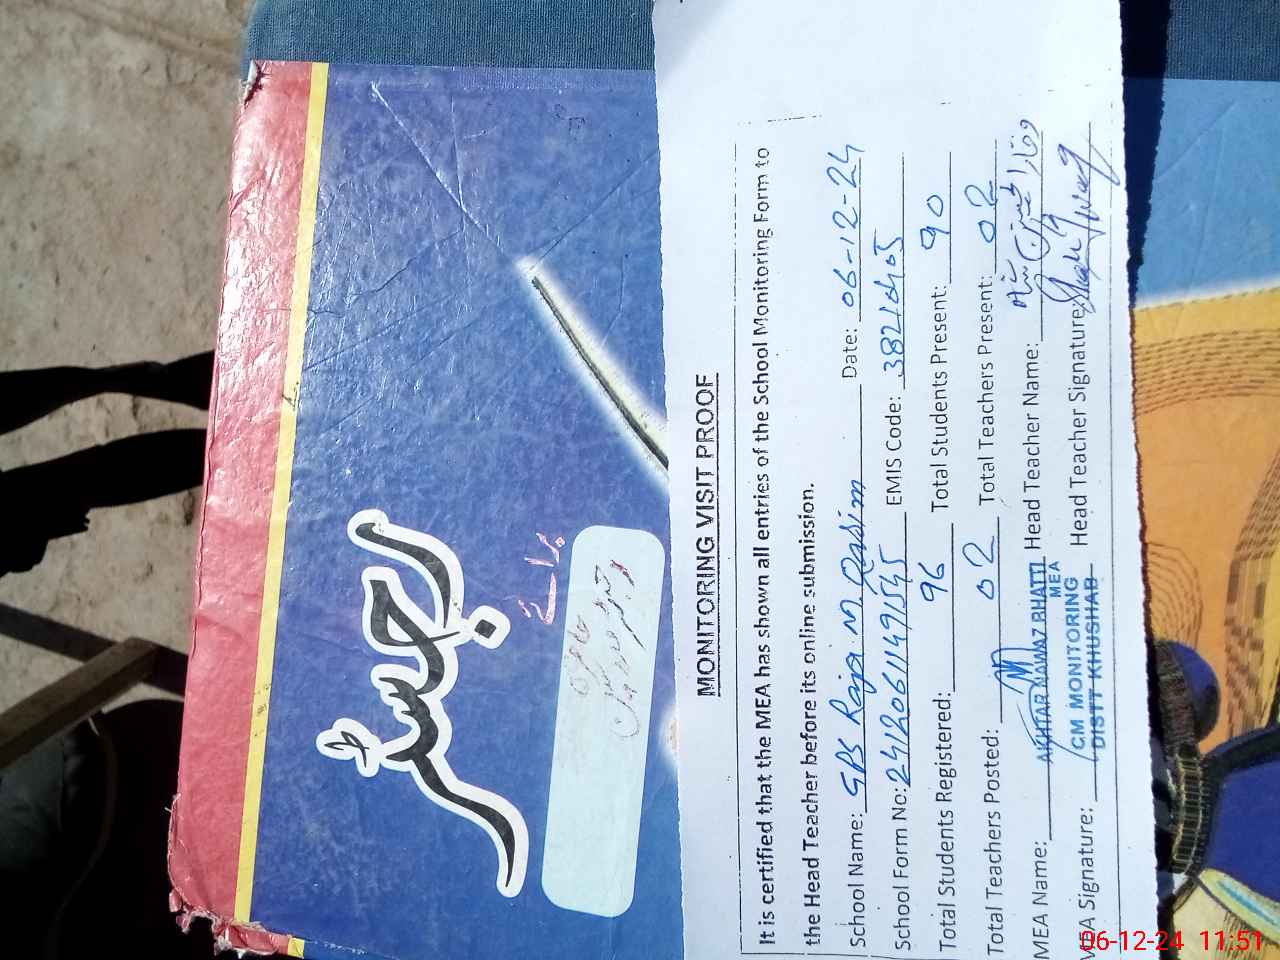 رجسٹر
برائے
MONITORING VISIT PROOF
It is certified that the MEA has shown all entries of the School Monitoring Form to
the Head Teacher before its online submission.
School Name: GPS Raja M. Qasim Date: 06-12-24
School Form No: 24120611491545 EMIS Code: 38210405
Total Students Registered: 96 Total Students Present: 90
Total Teachers Posted: 02 Total Teachers Present: 02
MEA Name: AKHTAR NAWAZ BHATTI Head Teacher Name:
MEA
MEA Signature: CM MONITORING Head Teacher Signature:
DISTT KHUSHAB
06-12-24 11:51